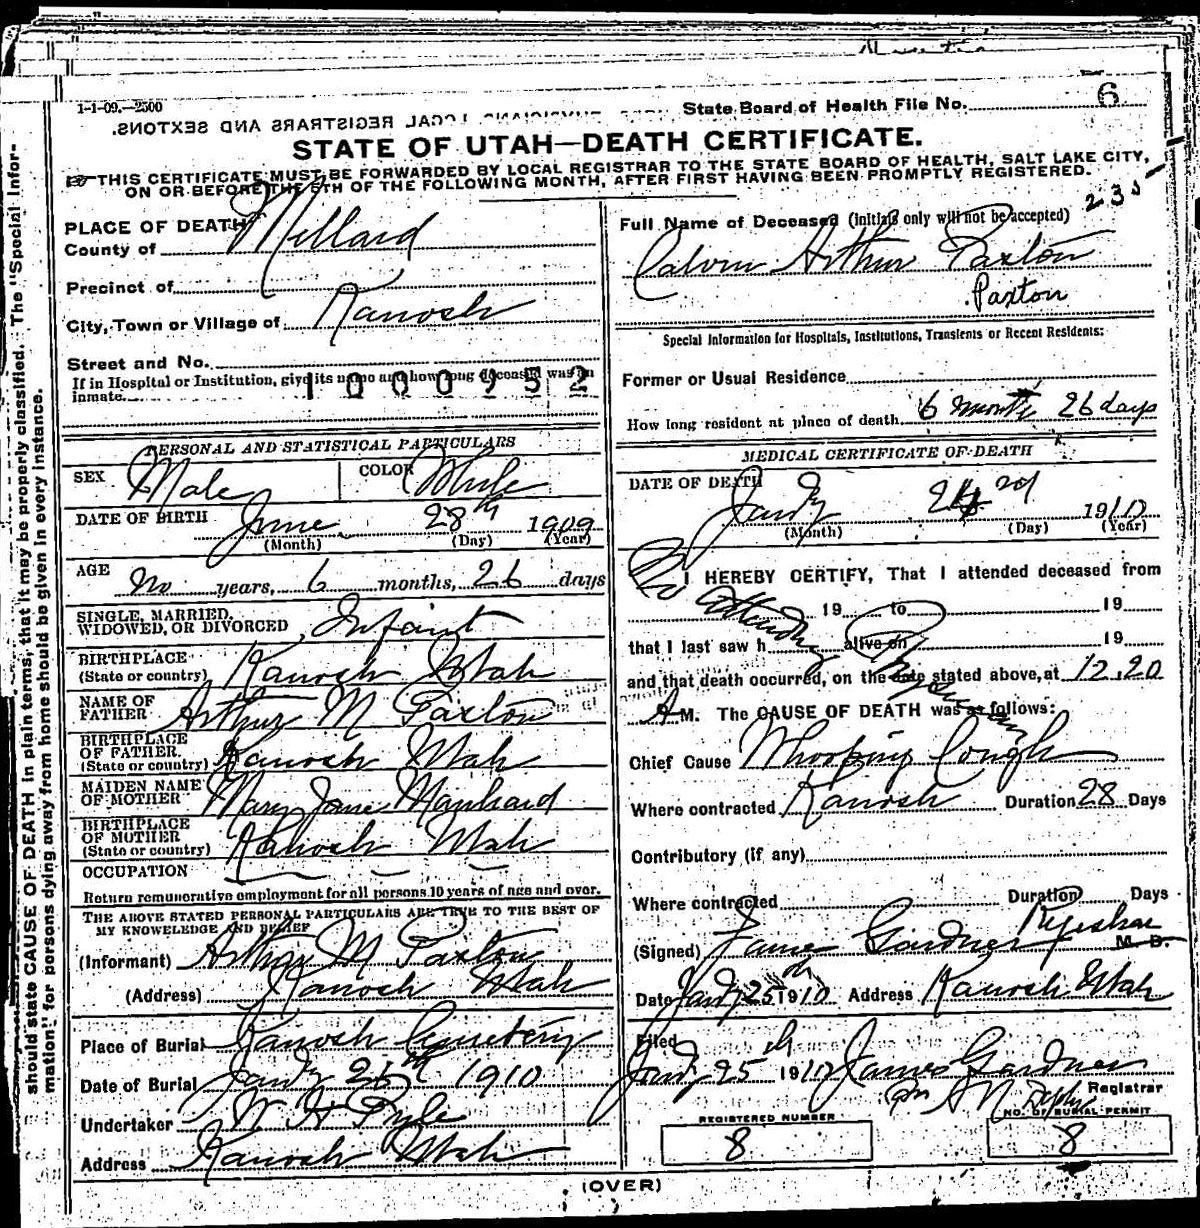 1-1-09.—2500
State Board of Health File No. 6
PHYSICIANS, LOCAL REGISTRARS AND SEXTONS.
STATE OF UTAH—DEATH CERTIFICATE.
THIS CERTIFICATE MUST BE FORWARDED BY LOCAL REGISTRAR TO THE STATE BOARD OF HEALTH, SALT LAKE CITY,
ON OR BEFORE THE 5TH OF THE FOLLOWING MONTH, AFTER FIRST HAVING BEEN PROMPTLY REGISTERED.
should state CAUSE OF DEATH in plain terms, that it may be properly classified. The "Special Infor-
mation" for persons dying away from home should be given in every instance.
PLACE OF DEATH
County of Millard
Precinct of
City, Town or Village of Kanosh
Street and No.
If in Hospital or Institution, give its name and how long deceased was an
inmate.
1000952
PERSONAL AND STATISTICAL PARTICULARS
SEX Male COLOR White
DATE OF BIRTH June 28th 1909
(Month) (Day) (Year)
AGE No years, 6 months, 26 days
SINGLE, MARRIED,
WIDOWED, OR DIVORCED Infant
BIRTHPLACE
(State or country) Kanosh Utah
NAME OF
FATHER Arthur M Paxton
BIRTHPLACE
OF FATHER
(State or country) Kanosh Utah
MAIDEN NAME
OF MOTHER Mary Jane Manhard
BIRTHPLACE
OF MOTHER
(State or country) Kanosh Utah
OCCUPATION
Return remunerative employment for all persons 10 years of age and over.
THE ABOVE STATED PERSONAL PARTICULARS ARE TRUE TO THE BEST OF
MY KNOWLEDGE AND BELIEF
(Informant) Arthur M Paxton
(Address) Kanosh Utah
Place of Burial Kanosh Cemetery
Date of Burial Jany 26th 1910
Undertaker W H Pyle
Address Kanosh Utah
235
Full Name of Deceased (initials only will not be accepted)
Calvin Arthur Paxton
Paxton
Special Information for Hospitals, Institutions, Transients or Recent Residents:
Former or Usual Residence
How long resident at place of death 6 months 26 days
MEDICAL CERTIFICATE OF DEATH
DATE OF DEATH Jany 24 1910
(Month) (Day) (Year)
I HEREBY CERTIFY, That I attended deceased from
19 to 19
that I last saw h alive on 19
No attending Physician
and that death occurred, on the date stated above, at 12.20
A M. The CAUSE OF DEATH was as follows:
Chief Cause Whooping Cough
Where contracted Kanosh Duration 28 Days
Contributory (if any)
Where contracted Duration Days
(Signed) James Gardner M. D.
Date Jany 25th 1910 Address Kanosh Utah
Filed
Jany 25th 1910 James Gardner
Registrar
REGISTERED NUMBER
8
NO. OF BURIAL PERMIT
8
(OVER)